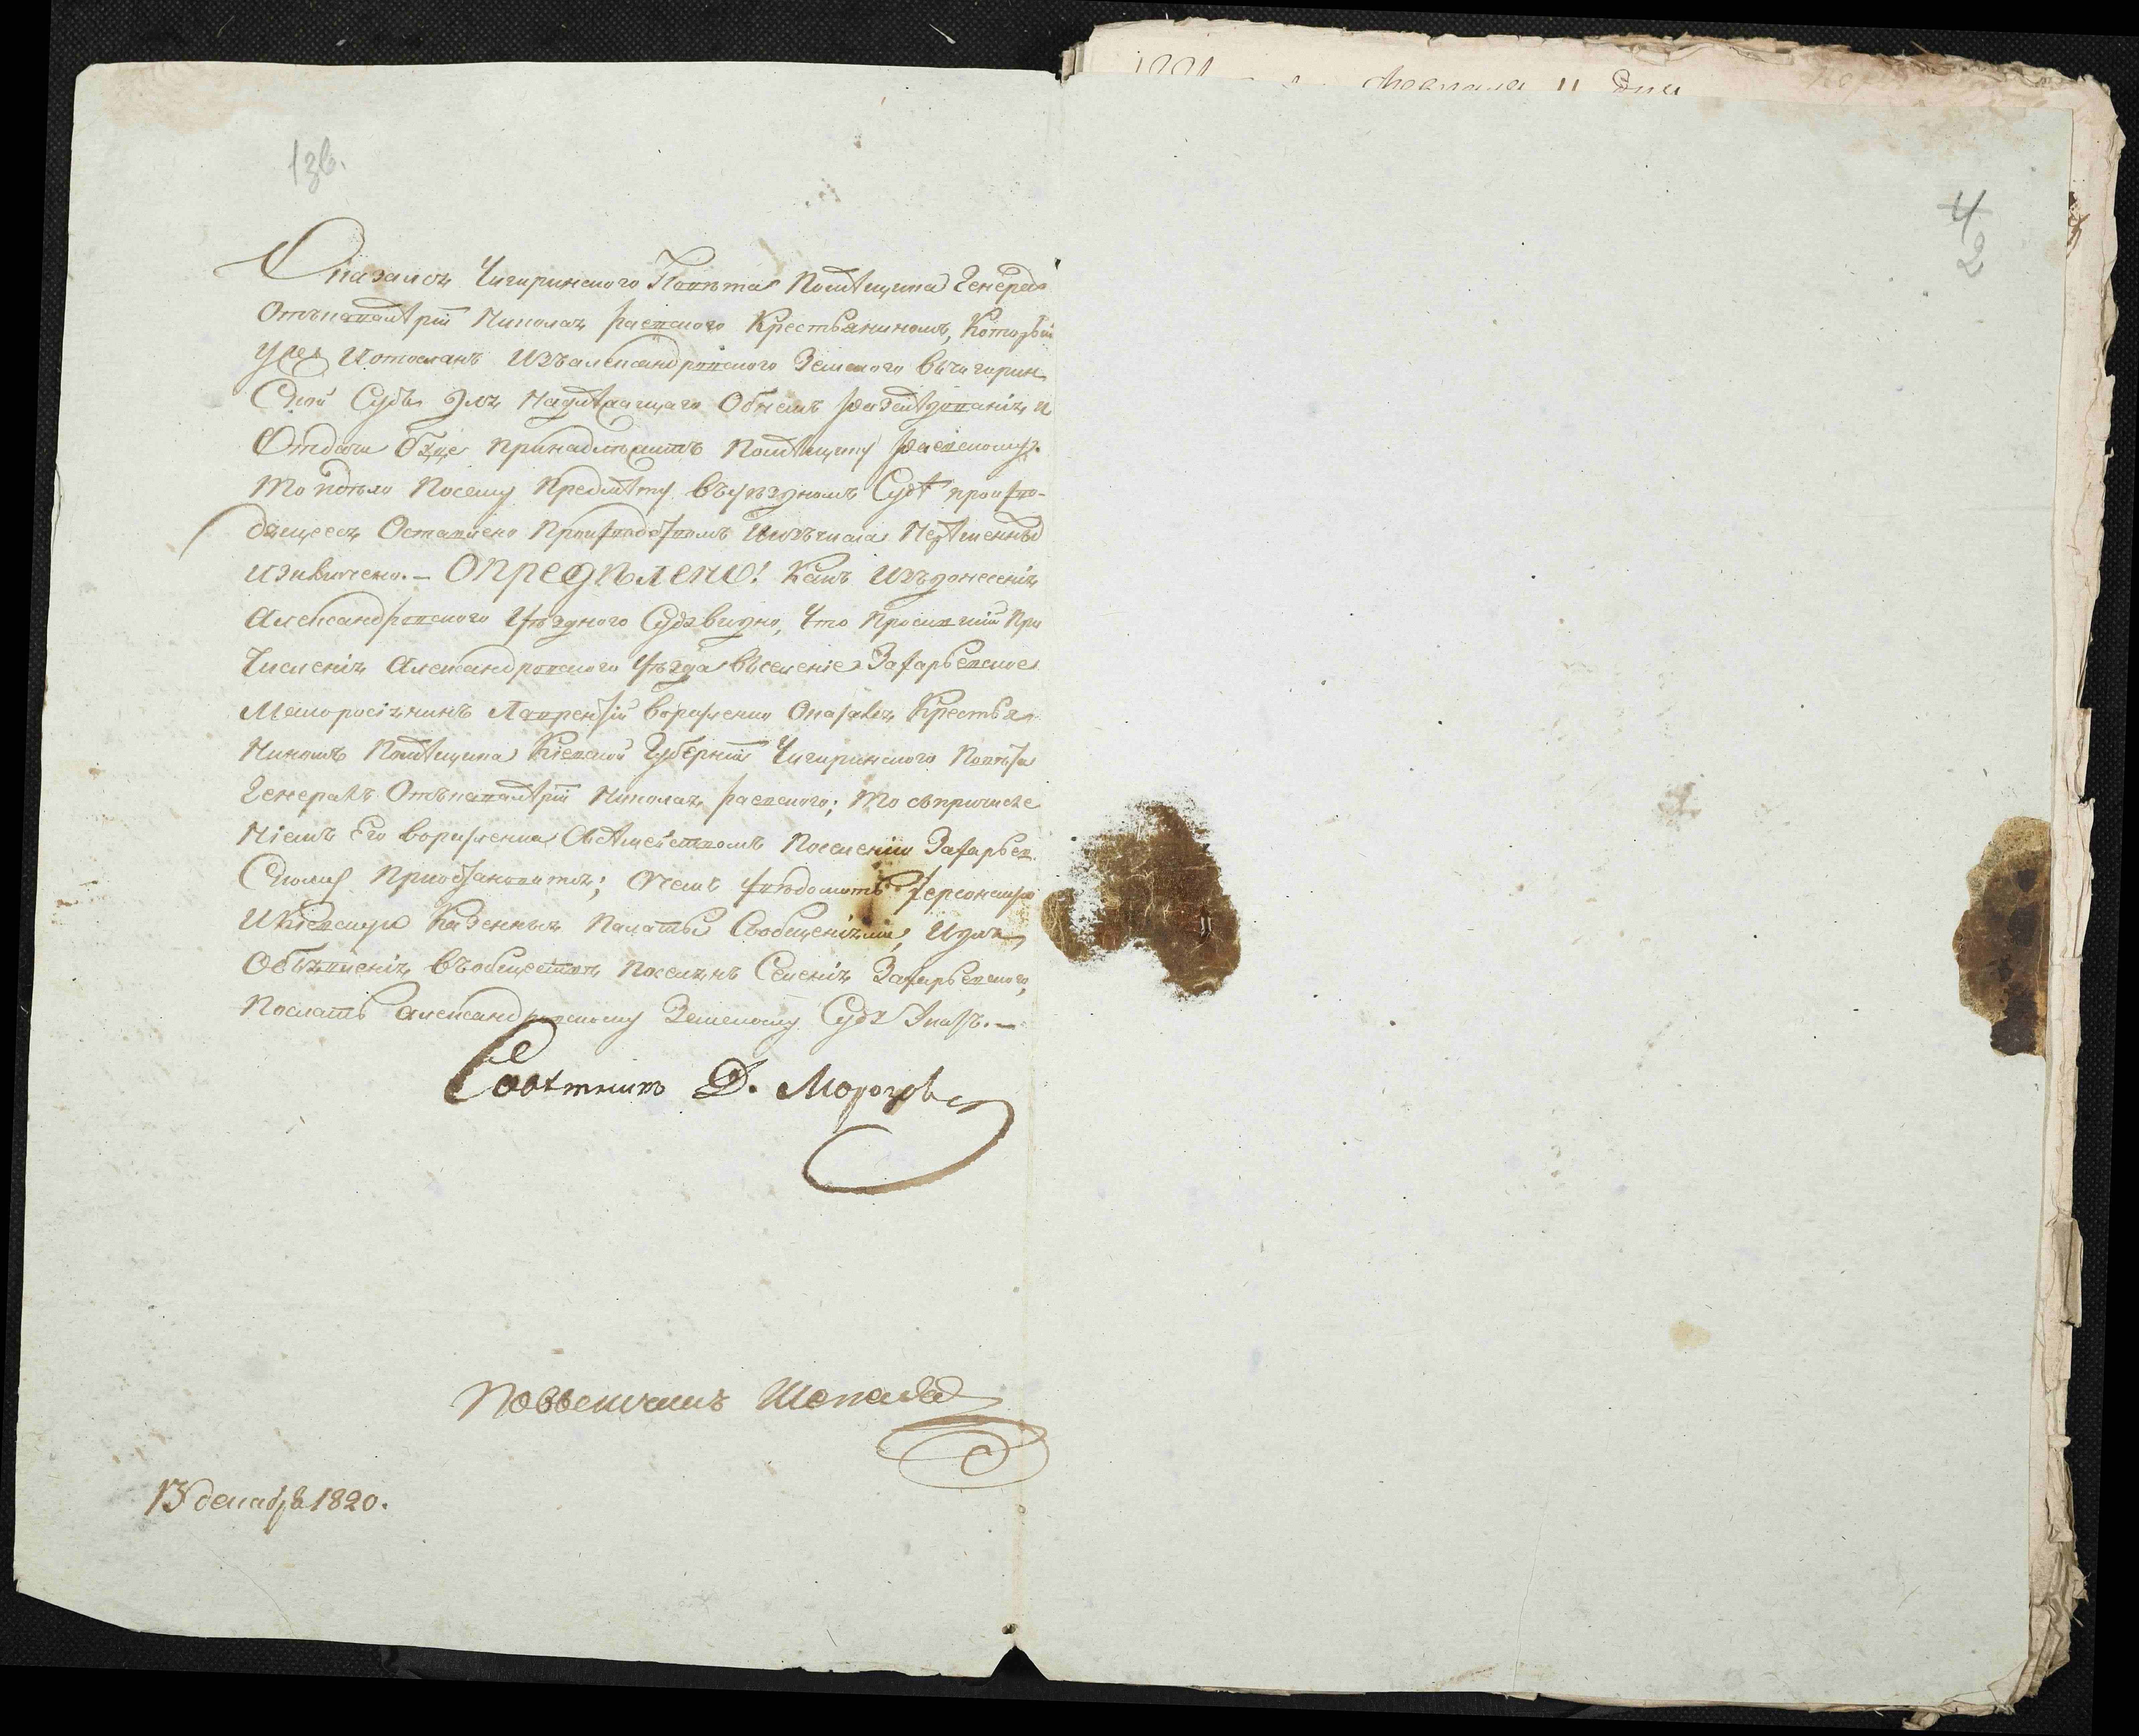 13б.
4
2
Оказался Чигиринского Повѣта Помѣщика Генерала
Отъкавалѣрiи Николая Раевского Крестьяниномъ, Который
Уже Иотосланъ Изъалександровского Земского въчигирин
Ской Судъ Для Надлѣжащаго Обнемъ Разслѣдованiя, и
Отдачи буде принадлѣжитъ Помѣщику Раевскому.
То идѣло Посему Предмѣту въуѣздномъ Судѣ произво-
дящееся Оставлено Производствомъ Иизъчисла Нерѣшенныхъ
изключено. – Опредѣлено! Какъ Изъдонесенiя
Александровского Уѣздного Суда видно, Что Просившiй При
Численiя Александровского уѣзда въселенiе Захарьевское
Малоросiянинъ Лаврентiй Оказался Крестья
Ниномъ Помѣщика Кiевской Губернiи Чигиринского Повѣта
Генерала Отъкавалѣрiи Николая Раевского; То съпричисле
Нiемъ Его Съсѣмействомъ Поселенiю Захарьев
Скому Приостановится; Очемъ увѣдомить Херсонскую
ИКiевскую Казенныя Палаты Сообщенiями, Идля
Объявленiя въобществѣ поселянъ Селенiя Захарьевского,
Послать Александровскому Земскому Суду Указъ. –
Совѣтникъ Д. Морозов
Повытчикъ
13 декабря 1820.
февраля 11 дня